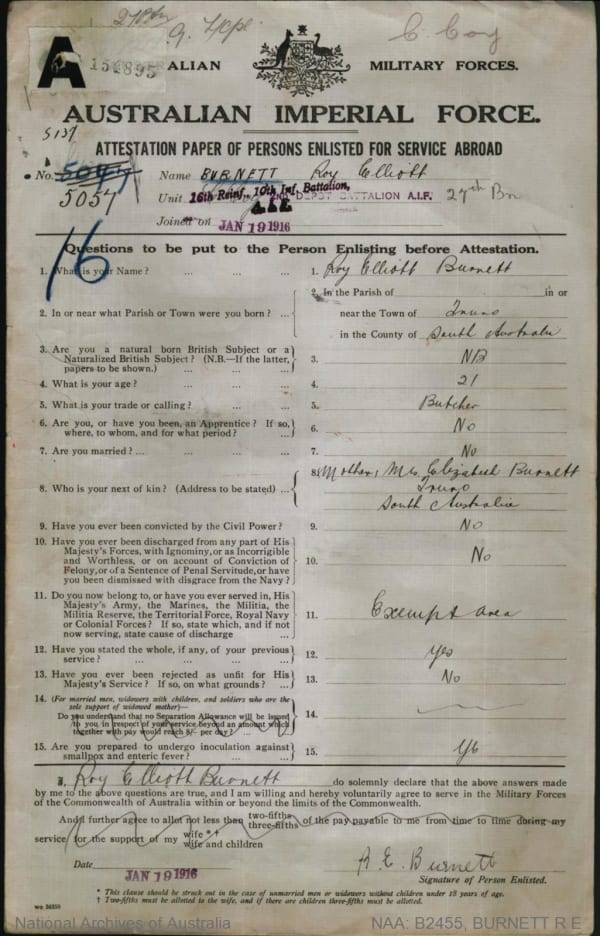 27 Bn
C. Coy
A
154895
ALIAN MILITARY FORCES.
AUSTRALIAN IMPERIAL FORCE.
ATTESTATION PAPER OF PERSONS ENLISTED FOR SERVICE ABROAD
5137
No. 5047 Name BURNETT Roy Elliott
5057 Unit 16th Reinf., 10th Inf. Battalion, 2ND DEPOT BATTALION A.I.F. 27th Bn
A.I.F.
Joined on JAN 19 1916
16
Questions to be put to the Person Enlisting before Attestation.
1. What is your Name? ... ... ... 1. Roy Elliott Burnett
2. In the Parish of in or
2. In or near what Parish or Town were you born? ... near the Town of Truro
in the County of South Australia
3. Are you a natural born British Subject or a
Naturalized British Subject? (N.B.—If the latter, 3. NB
papers to be shown.) ... ...
4. What is your age? ... ... ... 4. 21
5. What is your trade or calling? ... ... 5. Butcher
6. Are you, or have you been, an Apprentice? If so,
where, to whom, and for what period? ... 6. No
7. Are you married? ... ... ... ... 7. No
8. Mother, Mrs. Elizabeth Burnett
8. Who is your next of kin? (Address to be stated) ... Truro
South Australia
9. Have you ever been convicted by the Civil Power? 9. No
10. Have you ever been discharged from any part of His
Majesty's Forces, with Ignominy, or as Incorrigible
and Worthless, or on account of Conviction of 10. No
Felony, or of a Sentence of Penal Servitude, or have
you been dismissed with disgrace from the Navy?
11. Do you now belong to, or have you ever served in, His
Majesty's Army, the Marines, the Militia, the
Militia Reserve, the Territorial Force, Royal Navy 11. Exempt area
or Colonial Forces? If so, state which, and if not
now serving, state cause of discharge ...
12. Have you stated the whole, if any, of your previous
service? ... ... ... ... 12. Yes
13. Have you ever been rejected as unfit for His
Majesty's Service? If so, on what grounds? ... 13. No
14. (For married men, widowers with children, and soldiers who are the
sole support of widowed mother)—
Do you understand that no Separation Allowance will be issued 14.
to you in respect of your service beyond an amount which
together with pay would reach 8/- per day ...
15. Are you prepared to undergo inoculation against
smallpox and enteric fever? ... ... 15. Yes
I, Roy Elliott Burnett do solemnly declare that the above answers made
by me to the above questions are true, and I am willing and hereby voluntarily agree to serve in the Military Forces
of the Commonwealth of Australia within or beyond the limits of the Commonwealth.
And I further agree to allot not less than two-fifths three-fifths of the pay payable to me from time to time during my
service for the support of my wife * † wife and children
Date JAN 19 1916 R. E. Burnett
Signature of Person Enlisted.
* This clause should be struck out in the case of unmarried men or widowers without children under 18 years of age.
† Two-fifths must be allotted to the wife, and if there are children three-fifths must be allotted.
National Archives of Australia NAA: B2455, BURNETT R E